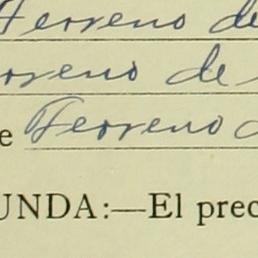 Terreno de
rreno de
e Terreno
UNDA:—El prec